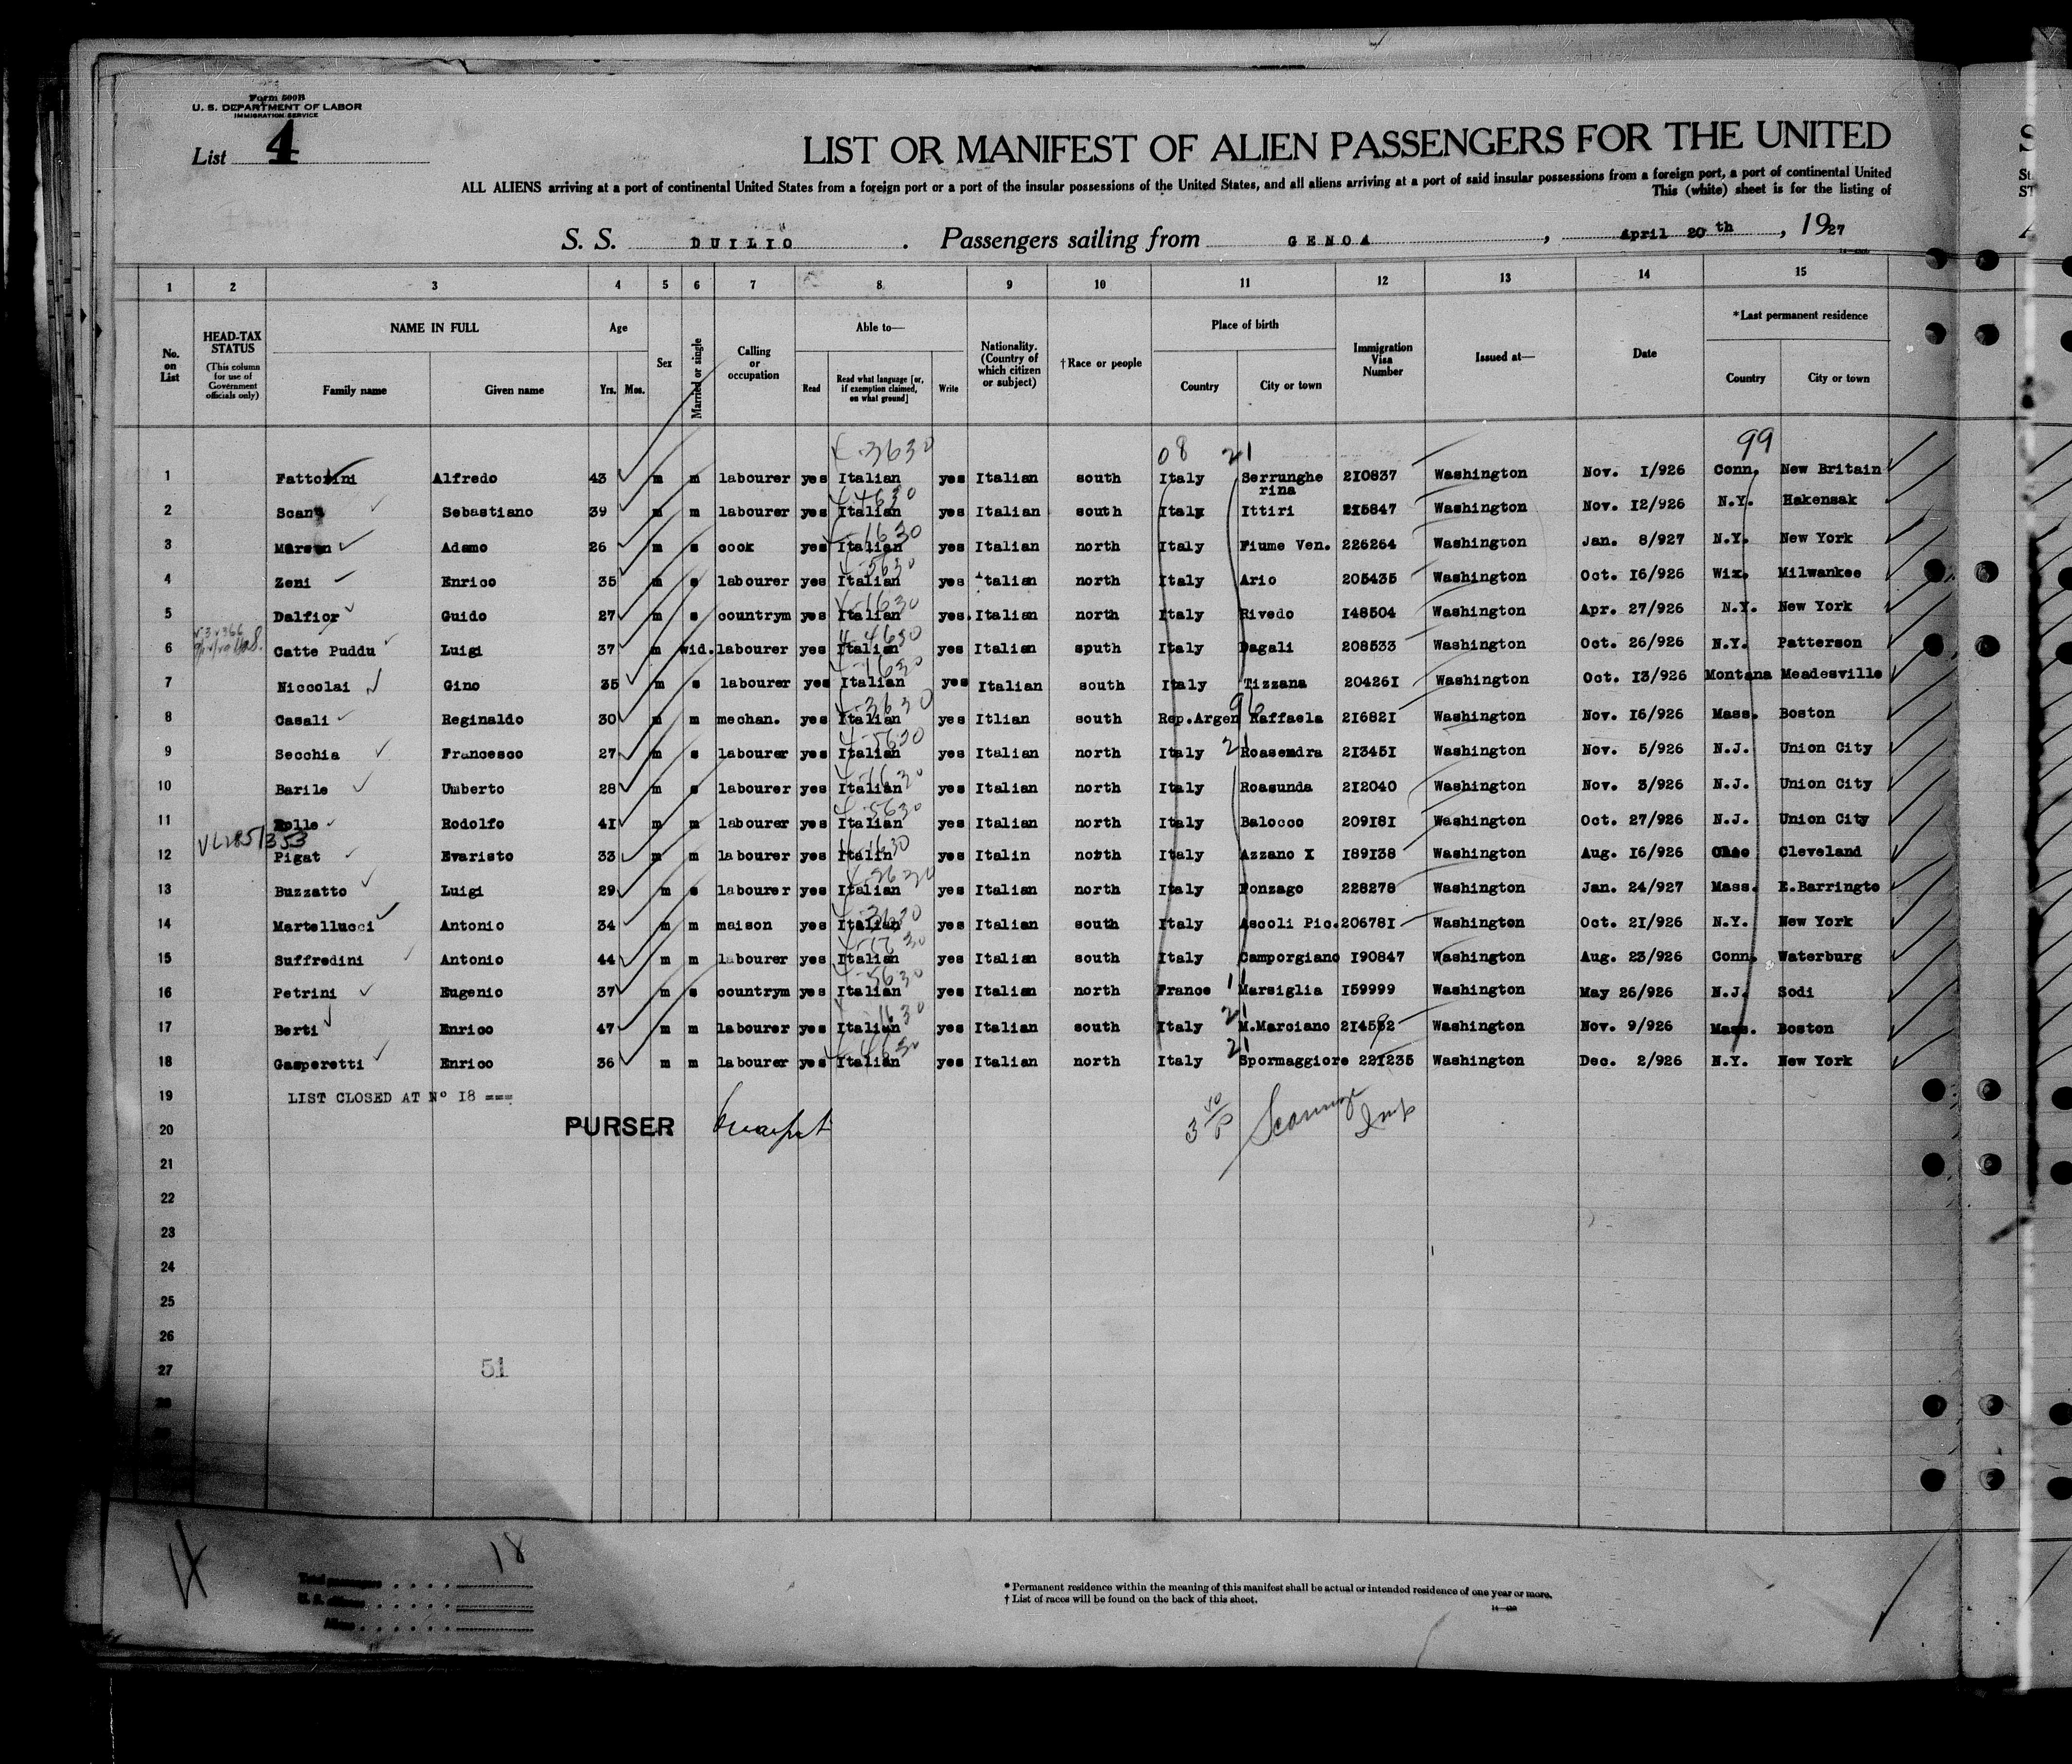 Form 500B
U. S. DEPARTMENT OF LABOR
IMMIGRATION SERVICE
List 4
LIST OR MANIFEST OF ALIEN PASSENGERS FOR THE UNITED
ALL ALIENS arriving at a port of continental United States from a foreign port or a port of the insular possessions of the United States, and all aliens arriving at a port of said insular possessions from a foreign port, a port of continental United
This (white) sheet is for the listing of
S. S. DUILIO . Passengers sailing from GENOA , April 20 th , 1927
1 2 3 4 5 6 7 8 9 10 11 12 13 14 15
No. on List
HEAD-TAX STATUS (This column for use of Government officials only)
NAME IN FULL Family name Given name
Age Yrs. Mos.
Sex
Married or single
Calling or occupation
Able to— Read Read what language [or, if exemption claimed, on what ground] Write
Nationality. (Country of which citizen or subject)
†Race or people
Place of birth Country City or town
Immigration Visa Number
Issued at—
Date
*Last permanent residence Country City or town
08 21 99
1 Fattorini Alfredo 43 m m labourer yes Italian yes Italian south Italy Serrungherina 210837 Washington Nov. 1/926 Conn. New Britain
2 Sebastiano 39 m m labourer yes Italian yes Italian south Italy Ittiri 215847 Washington Nov. 12/926 N.Y. Hakensak
3 Adamo 26 m s cook yes Italian yes Italian north Italy Fiume Ven. 226264 Washington Jan. 8/927 N.Y. New York
4 Zeni Enrico 35 m s labourer yes Italian yes Italian north Italy Ario 205435 Washington Oct. 16/926 Wix. Milwankee
5 Dalfior Guido 27 m s countrym yes Italian yes. Italian north Italy Rivedo 148504 Washington Apr. 27/926 N.Y. New York
6 Catte Puddu Luigi 37 m wid. labourer yes Italian yes Italian sputh Italy Dagali 208533 Washington Oct. 26/926 N.Y. Patterson
7 Niccolai Gino 35 m s labourer yes Italian yes Italian south Italy Tizzana 204261 Washington Oct. 13/926 Montana Meadesville
8 Casali Reginaldo 30 m m mechan. yes Italian yes Itlian south Rep.Argen Raffaela 216821 Washington Nov. 16/926 Mass. Boston
9 Secchia Francesco 27 m s labourer yes Italian yes Italian north Italy Roasendra 213451 Washington Nov. 5/926 N.J. Union City
10 Barile Umberto 28 m s labourer yes Italian yes Italian north Italy Roasunda 212040 Washington Nov. 3/926 N.J. Union City
11 Rodolfo 41 m m labourer yes Italian yes Italian north Italy Balocco 209181 Washington Oct. 27/926 N.J. Union City
12 Pigat Evaristo 33 m m labourer yes Italin yes Italin north Italy Azzano X 189138 Washington Aug. 16/926 Cleveland
13 Buzzatto Luigi 29 m s labourer yes Italian yes Italian north Italy Fonzago 228278 Washington Jan. 24/927 Mass. E.Barringto
14 Martellucci Antonio 34 m m maison yes Italian yes Italian south Italy Ascoli Pic. 206781 Washington Oct. 21/926 N.Y. New York
15 Suffredini Antonio 44 m m labourer yes Italian yes Italian south Italy Camporgiano 190847 Washington Aug. 23/926 Conn. Waterburg
16 Petrini Eugenio 37 m s countrym yes Italian yes Italian north France Marsiglia 159999 Washington May 26/926 N.J. Sodi
17 Berti Enrico 47 m m labourer yes Italian yes Italian south Italy M.Marciano Washington Nov. 9/926 Mass. Boston
18 Gasperetti Enrico 36 m m labourer yes Italian yes Italian north Italy Spormaggiore 221235 Washington Dec. 2/926 N.Y. New York
19 LIST CLOSED AT Nº 18 ===
20 PURSER
21
22
23
24
25
26
27
51
18
Total passengers
U. S. citizens
Aliens
* Permanent residence within the meaning of this manifest shall be actual or intended residence of one year or more.
† List of races will be found on the back of this sheet.